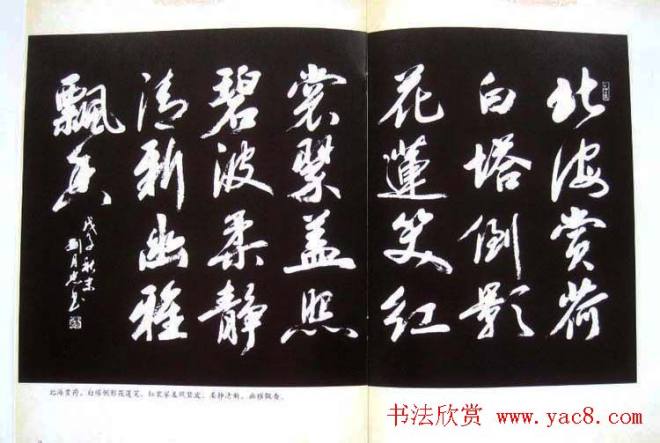 北海赏荷
白塔倒影
花蓮笑红
裳翠盖照
碧波柔静
清新幽雅
飘香
戊子秋末
北海赏荷，白塔倒影花莲笑，红裳翠盖照碧波，柔静清新，幽雅飘香。
书法欣赏
www.yac8.com